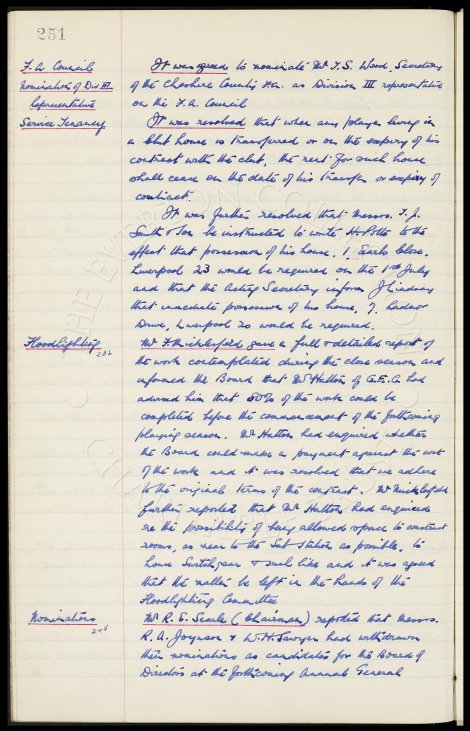 251
F.A. Council
Nomination of Div III
Representative
It was agreed to nominate Mr T.S. Wood, Secretary
of the Cheshire County F.A. as Division III representative
on the F.A. Council
Service Tenancy
It was resolved that when any player living in
a Club house is transferred or on the expiry of his
contract with the club, the rent for such house
shall cease on the date of his transfer or expiry of
contract.
It was further resolved that Messrs. T. J.
Smith & Son be instructed to write H. Potts to the
effect that possession of his house, 1, Earls Close,
Liverpool 23 would be required on the 1st July
and that the Acting Secretary inform J Lindsay
that immediate possession of his house, 7,
Drive, Liverpool 20 would be required.
Floodlighting
252
Mr F. Micklesfield gave a full & detailed report of
the work contemplated during the close season and
informed the Board that Mr Hatton of G.E.C. had
advised him that 50% of the work could be
completed before the commencement of the forthcoming
playing season. Mr Hatton had enquired whether
the Board could make a payment against the cost
of the work and it was resolved that we adhere
to the original terms of the contract. Mr Micklesfield
further reported that Mr Hatton had enquired
re the possibility of being allowed space to construct
rooms, as near to the Sub Station as possible, to
house Switchgear & such like and it was agreed
that the matter be left in the hands of the
Floodlighting Committee
Nominations
Mr R. E. Searle (Chairman) reported that Messrs.
R. A. Joynson & W. H. Sawyer had withdrawn
their nominations as candidates for the Board of
Directors at the forthcoming Annual General
THE EVERTON COLLECTION
CHARITABLE TRUST